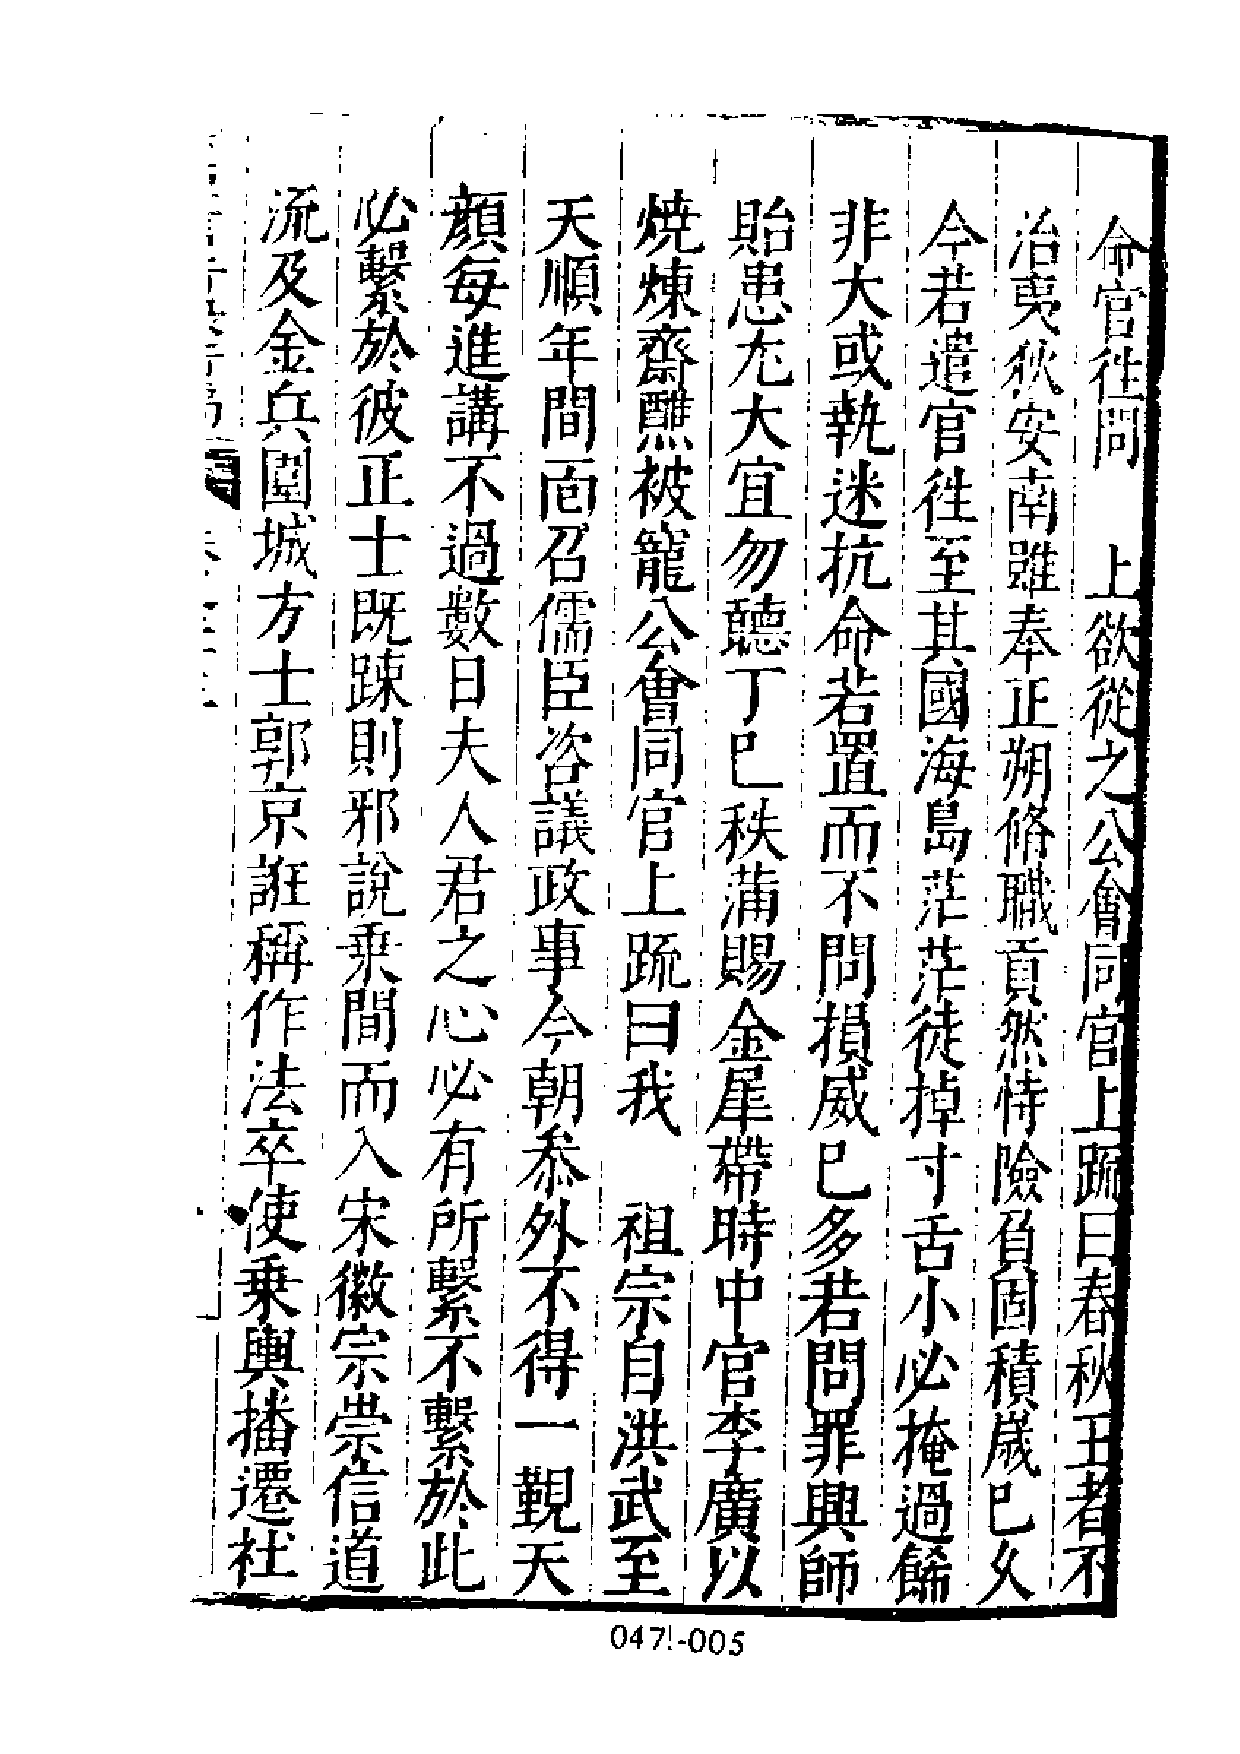 命官徃問　上欲從之公會同官上䟽曰春秋王者不
治夷狄安南雖奉正朔脩職貢然恃險負固積歲已久
今若遣官徃至其國海島茫茫徒掉寸舌小必掩過餙
非大或執迷抗命若置而不問損威已多若問罪興師
貽患尢大宜勿聽丁巳秩滿賜金犀帶時中官李廣以
燒煉齋醮被寵公會同官上䟽曰我　祖宗自洪武至
天順年間面召儒臣咨議政事今朝叅外不得一覲天
顏每進講不過數日夫人君之心必有所繫不繫於此
必繫於彼正士既踈則邪說乗間而入宋徽宗崇信道
流及金兵圍城方士郭京誑稱作法卒使乗輿播遷社
047!-005